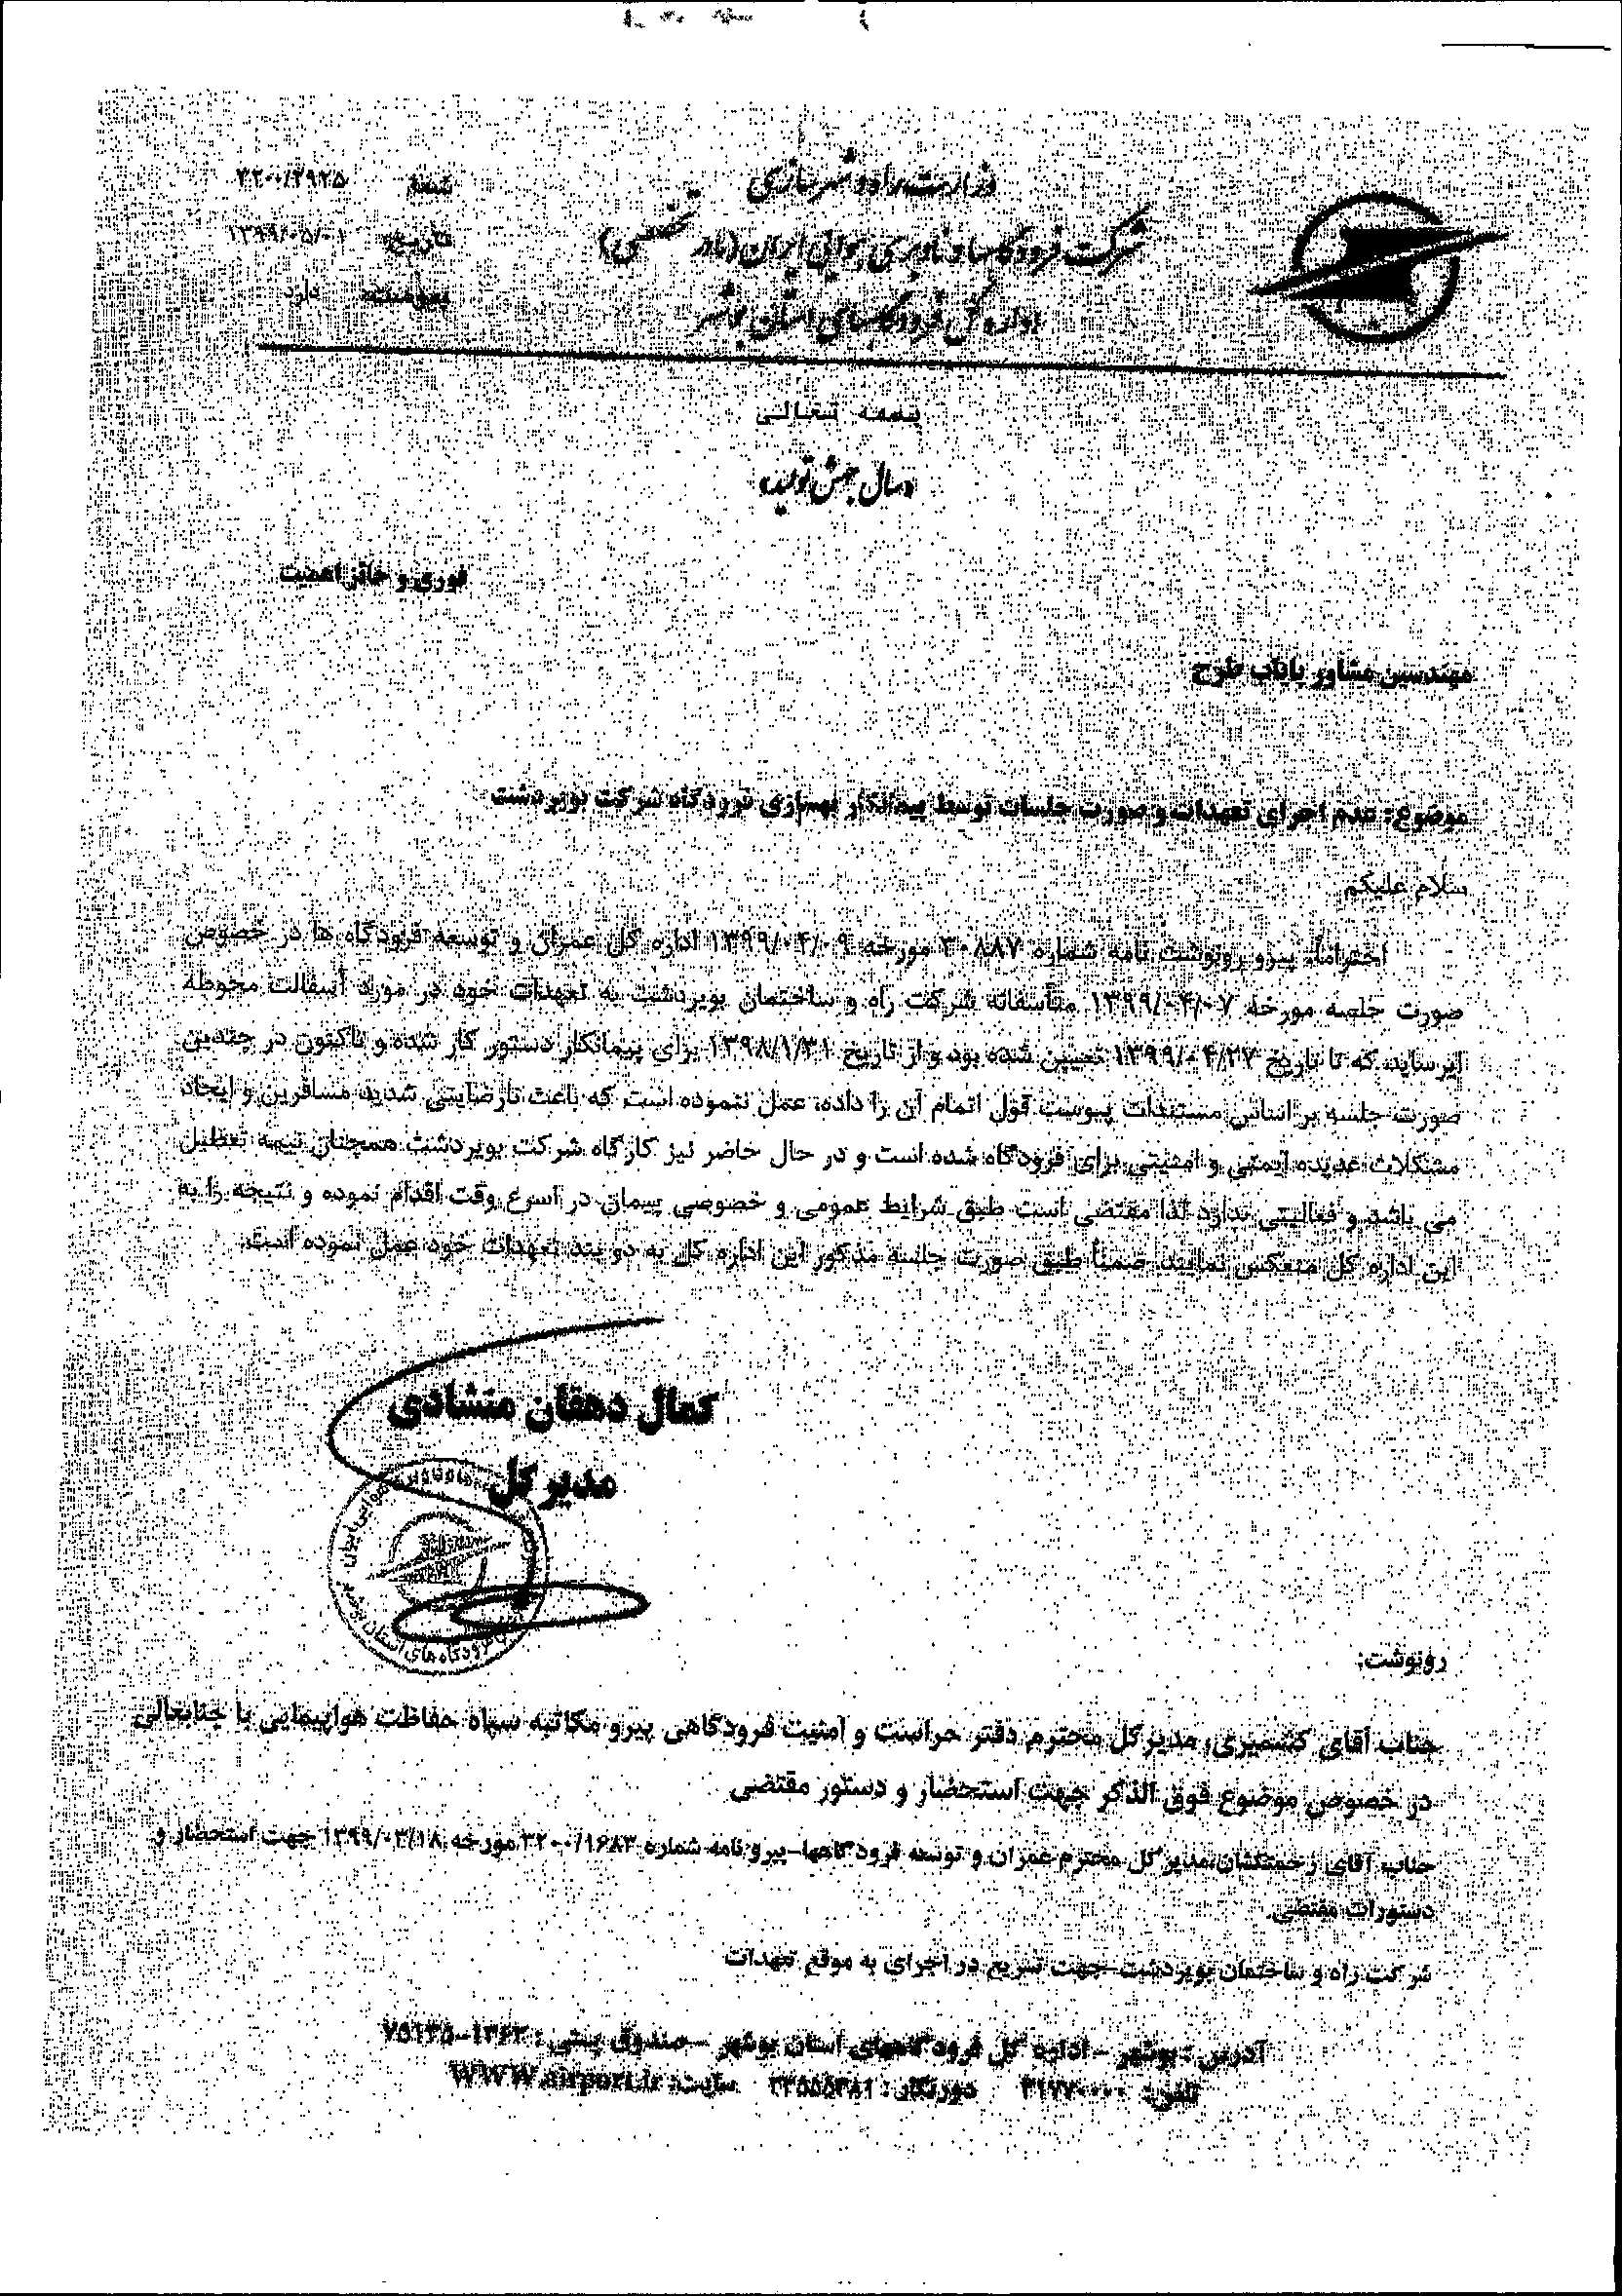 وزارت راه و شهرسازی
شرکت فرودگاهها و ناوبری هوایی ایران (مادر تخصصی)
اداره کل فرودگاههای استان بوشهر
شماره ۳۲۰۰/۲۹۲۵
تاریخ ۱۳۹۹/۰۵/۰۱
پیوست دارد
بسمه تعالی
«سال جهش تولید»
فوری و حائز اهمیت
مهندسین مشاور پایاب طرح
موضوع: عدم اجرای تعهدات و صورت جلسات توسط پیمانکار بهسازی فرودگاه شرکت بویردشت
سلام علیکم
احتراماً، پیرو رونوشت نامه شماره ۳۰۸۸۷ مورخه ۱۳۹۹/۰۴/۰۹ اداره کل عمران و توسعه فرودگاه ها در خصوص
صورت جلسه مورخه ۱۳۹۹/۰۴/۰۷ متأسفانه شرکت راه و ساختمان بویردشت به تعهدات خود در مورد آسفالت محوطه
ایرساید که تا تاریخ ۱۳۹۹/۰۴/۲۷ تعیین شده بود و از تاریخ ۱۳۹۸/۱/۳۱ برای پیمانکار دستور کار شده و تاکنون در چندین
صورت جلسه بر اساس مستندات پیوست قول اتمام آن را داده، عمل ننموده است که باعث نارضایتی شدید مسافرین و ایجاد
مشکلات عدیده ایمنی و امنیتی برای فرودگاه شده است و در حال حاضر نیز کارگاه شرکت بویردشت همچنان نیمه تعطیل
می باشد و فعالیتی ندارد لذا مقتضی است طبق شرایط عمومی و خصوصی پیمان در اسرع وقت اقدام نموده و نتیجه را به
این اداره کل منعکس نمایند. ضمناً طبق صورت جلسه مذکور این اداره کل به دو بند تعهدات خود عمل نموده است.
کمال دهقان منشادی
مدیر کل
رونوشت:
جناب آقای کشمیری، مدیرکل محترم دفتر حراست و امنیت فرودگاهی پیرو مکاتبه سپاه حفاظت هواپیمایی با جنابعالی
در خصوص موضوع فوق الذکر جهت استحضار و دستور مقتضی
جناب آقای زحمتکشان،مدیر کل محترم عمران و توسعه فرودگاهها-پیرو نامه شماره ۳۲۰۰/۱۶۸۳ مورخه ۱۳۹۹/۰۳/۱۸ جهت استحضار و
دستورات مقتضی
شرکت راه و ساختمان بویردشت-جهت تسریع در اجرای به موقع تعهدات
آدرس : بوشهر - اداره کل فرودگاههای استان بوشهر - صندوق پستی : ۱۳۶۳-۷۵۱۳۵
تلفن: ۳۱۷۷۰۰۰۰ دورنگار : ۳۳۵۵۵۳۸۱ سایت: WWW.airport.ir